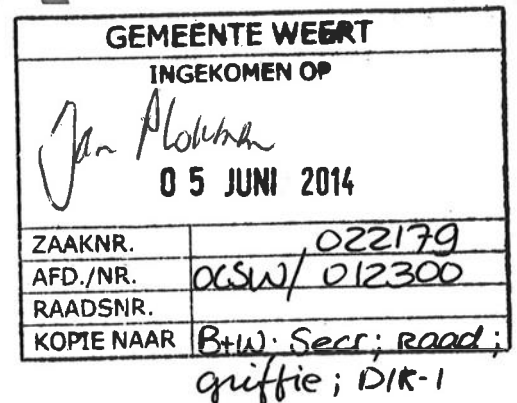 GEMEENTE WEERT
INGEKOMEN OP
Jan
0 5 JUNI 2014
ZAAKNR. 022179
AFD./NR. OCSW/ 012300
RAADSNR.
KOPIE NAAR B+W. Secr; Raad;
griffie; DIR-1